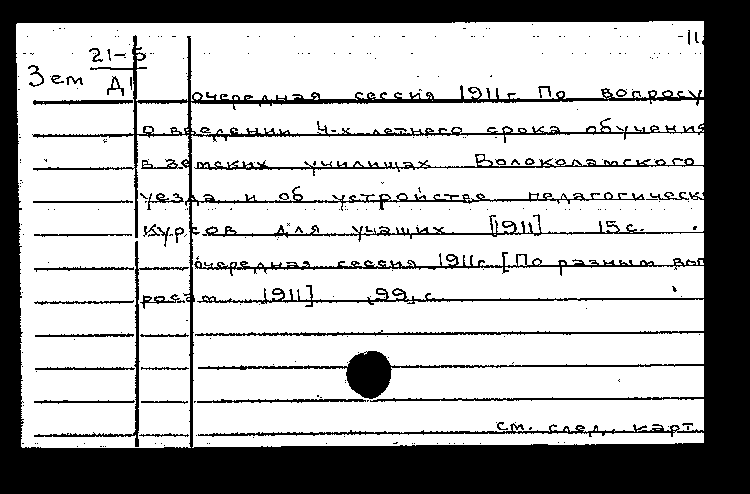 -11
21-5
Зем Д1
очередная сессия 1911г. По вопросу
о введении 4-х летнего срока обучения
в земских училищах Волоколамского
уезда и об устройстве педагогическ
курсов для учащих. [1911] 15с.
очередная сессия 1911г. [По разным воп
росам 1911] 99, с.
см. след. карт.